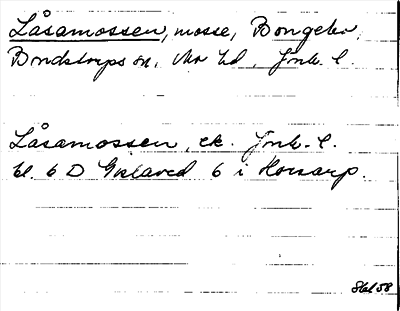 Låsamossen, mosse, Bongebo,
Bondstorps sn, Mo hd, Jönk. l.
Låsamossen, ek. Jönk. l.
bl. 6 D Gislaved 6 i Horsarp.
Stal 58